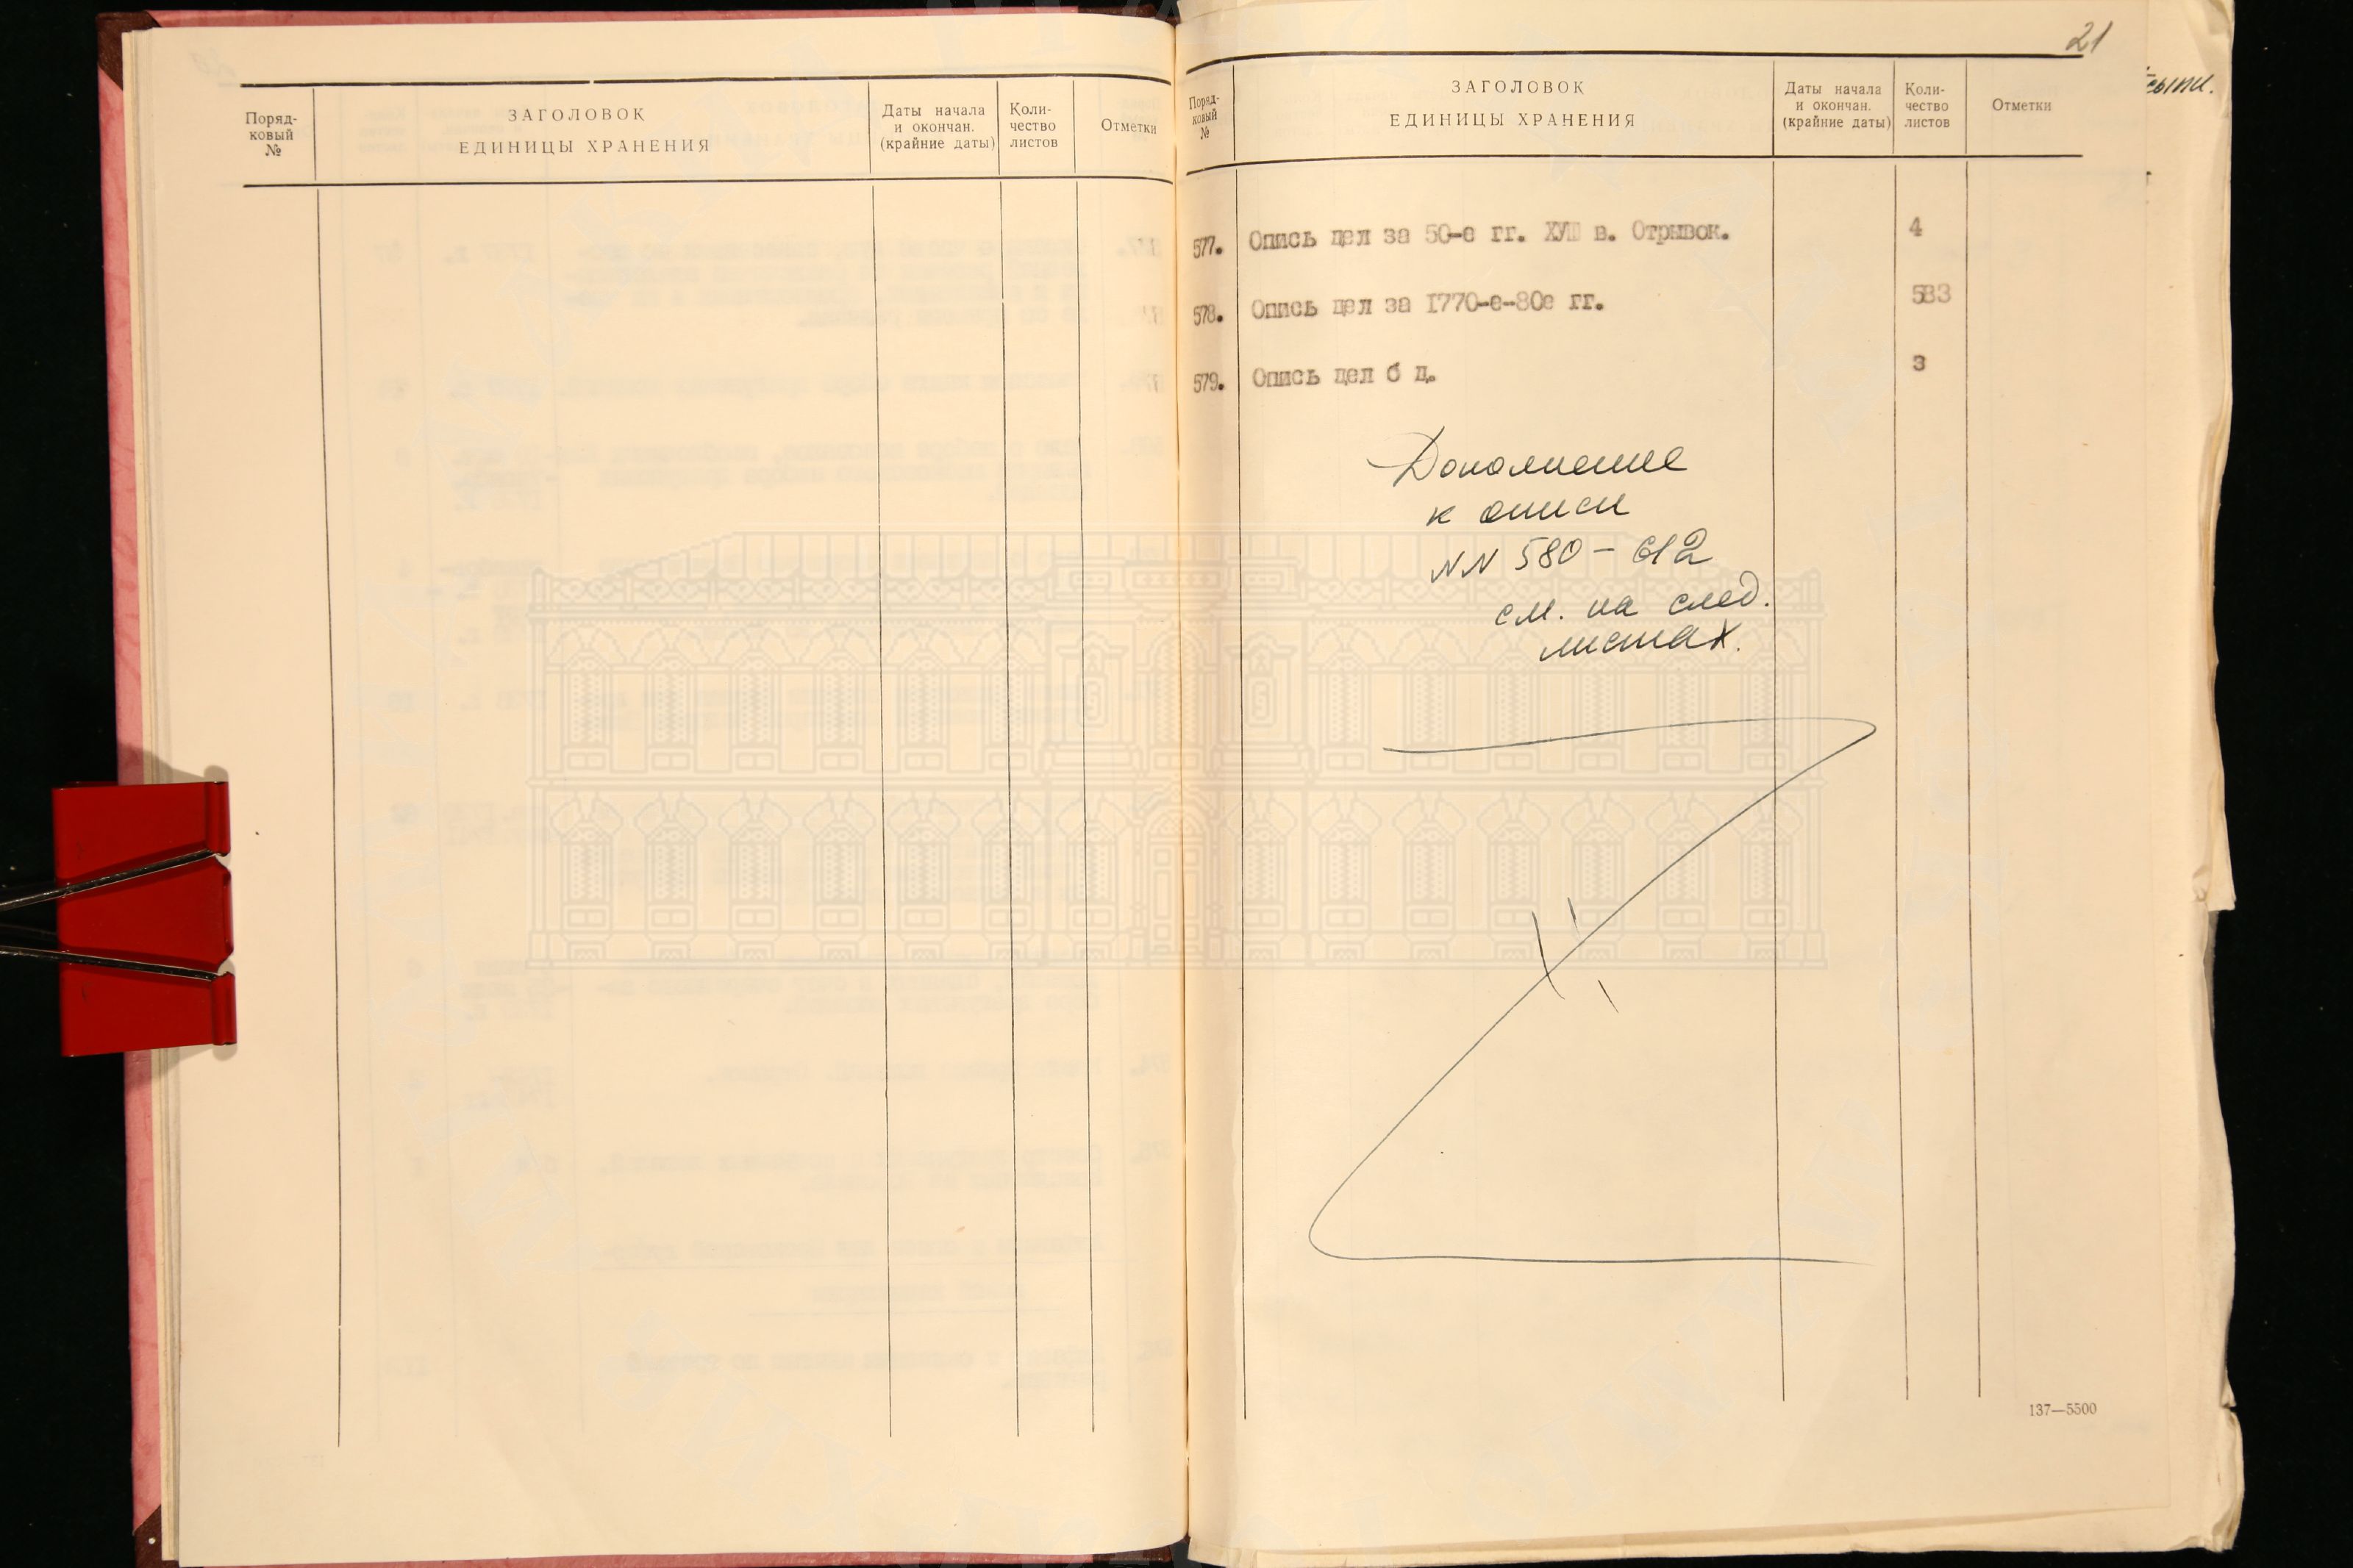 Поряд-
ковый
№
ЗАГОЛОВОК
ЕДИНИЦЫ ХРАНЕНИЯ
Даты начала
и окончан.
(крайние даты)
Коли-
чество
листов
Отметки
21
Поряд-
ковый
№
ЗАГОЛОВОК
ЕДИНИЦЫ ХРАНЕНИЯ
Даты начала
и окончан.
(крайние даты)
Коли-
чество
листов
Отметки
577. Опись дел за 50-е гг. ХУШ в. Отрывок. 4
578. Опись дел за 1770-е-80е гг. 583
579. Опись дел б д. 3
Дополнение
к описи
NN 580 - 612
см. на след.
листах.
137—5500